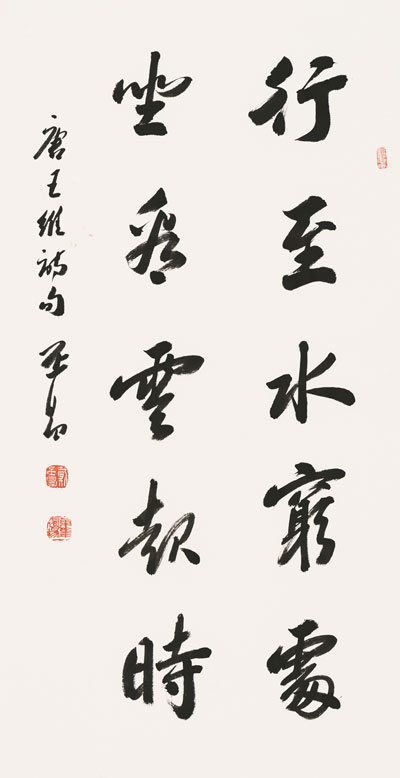 行至水窮處
坐看雲起時
唐王維詩句